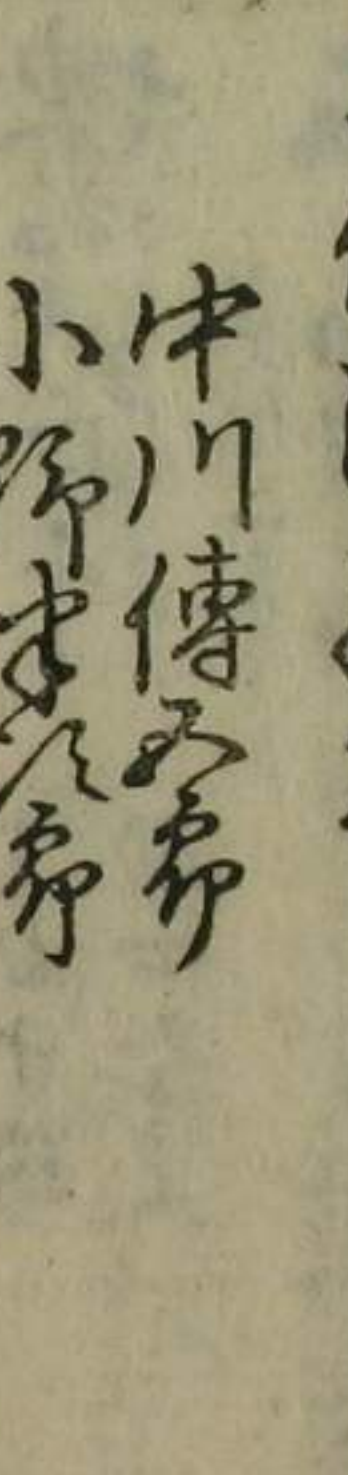 中川傳五郎
小野半次郎